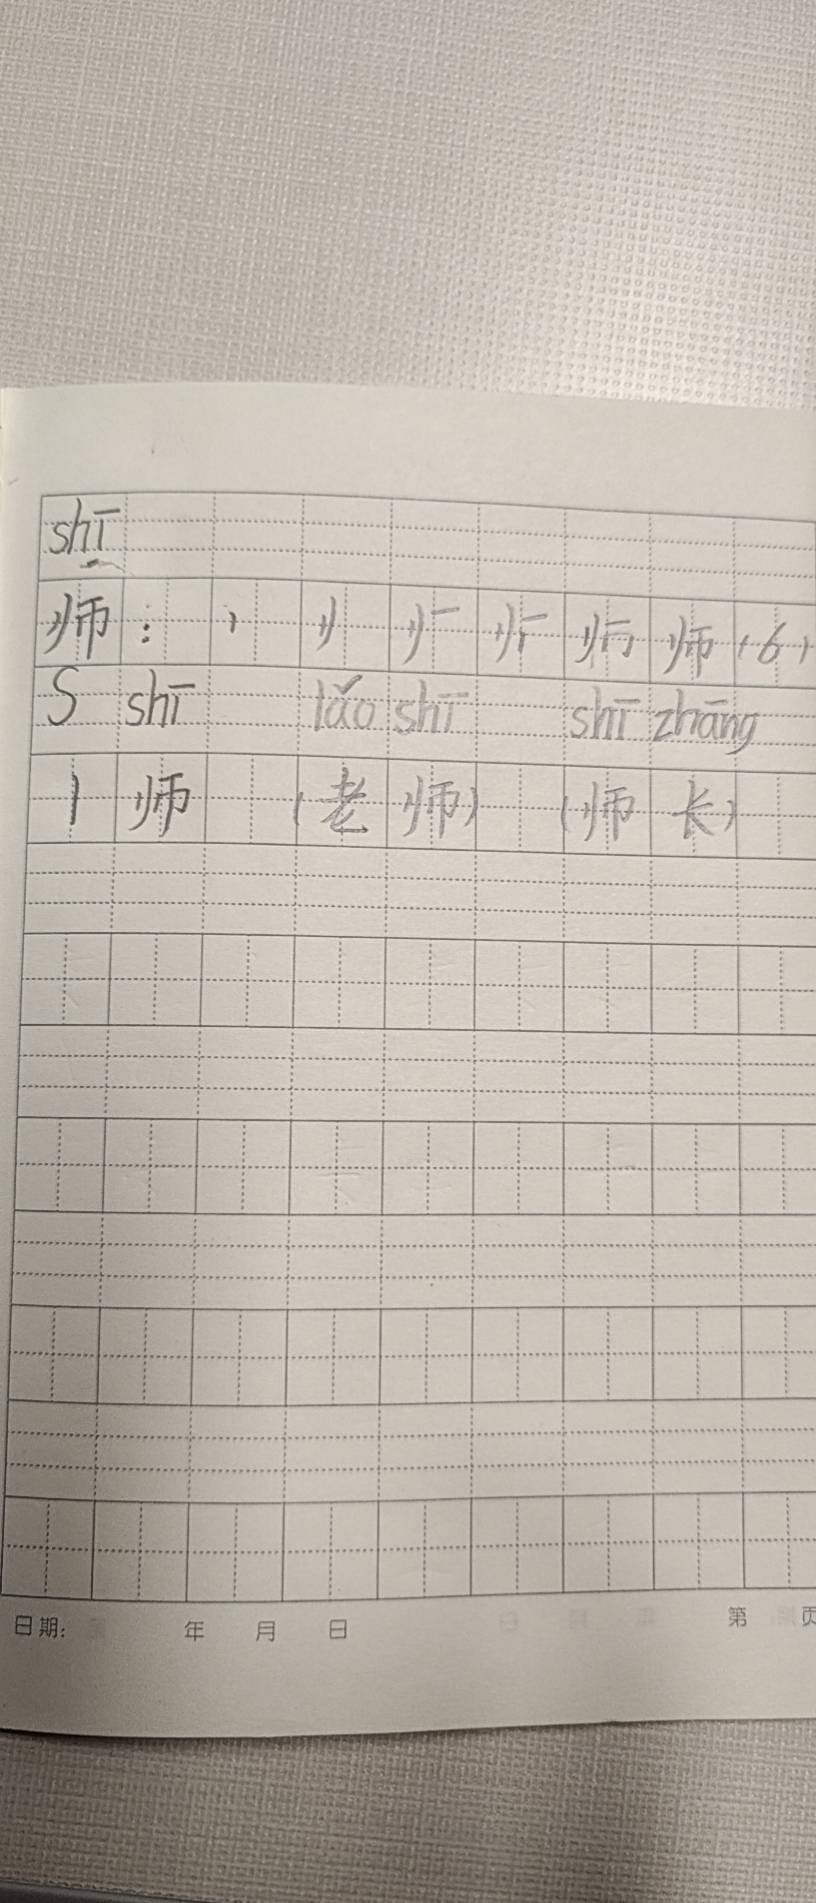 shī
师:丶 丿 丿一 师(6)
S shī lǎo shī shī zhāng
丨 师 (老师) (师长)
日期: 年 月 日 第 页